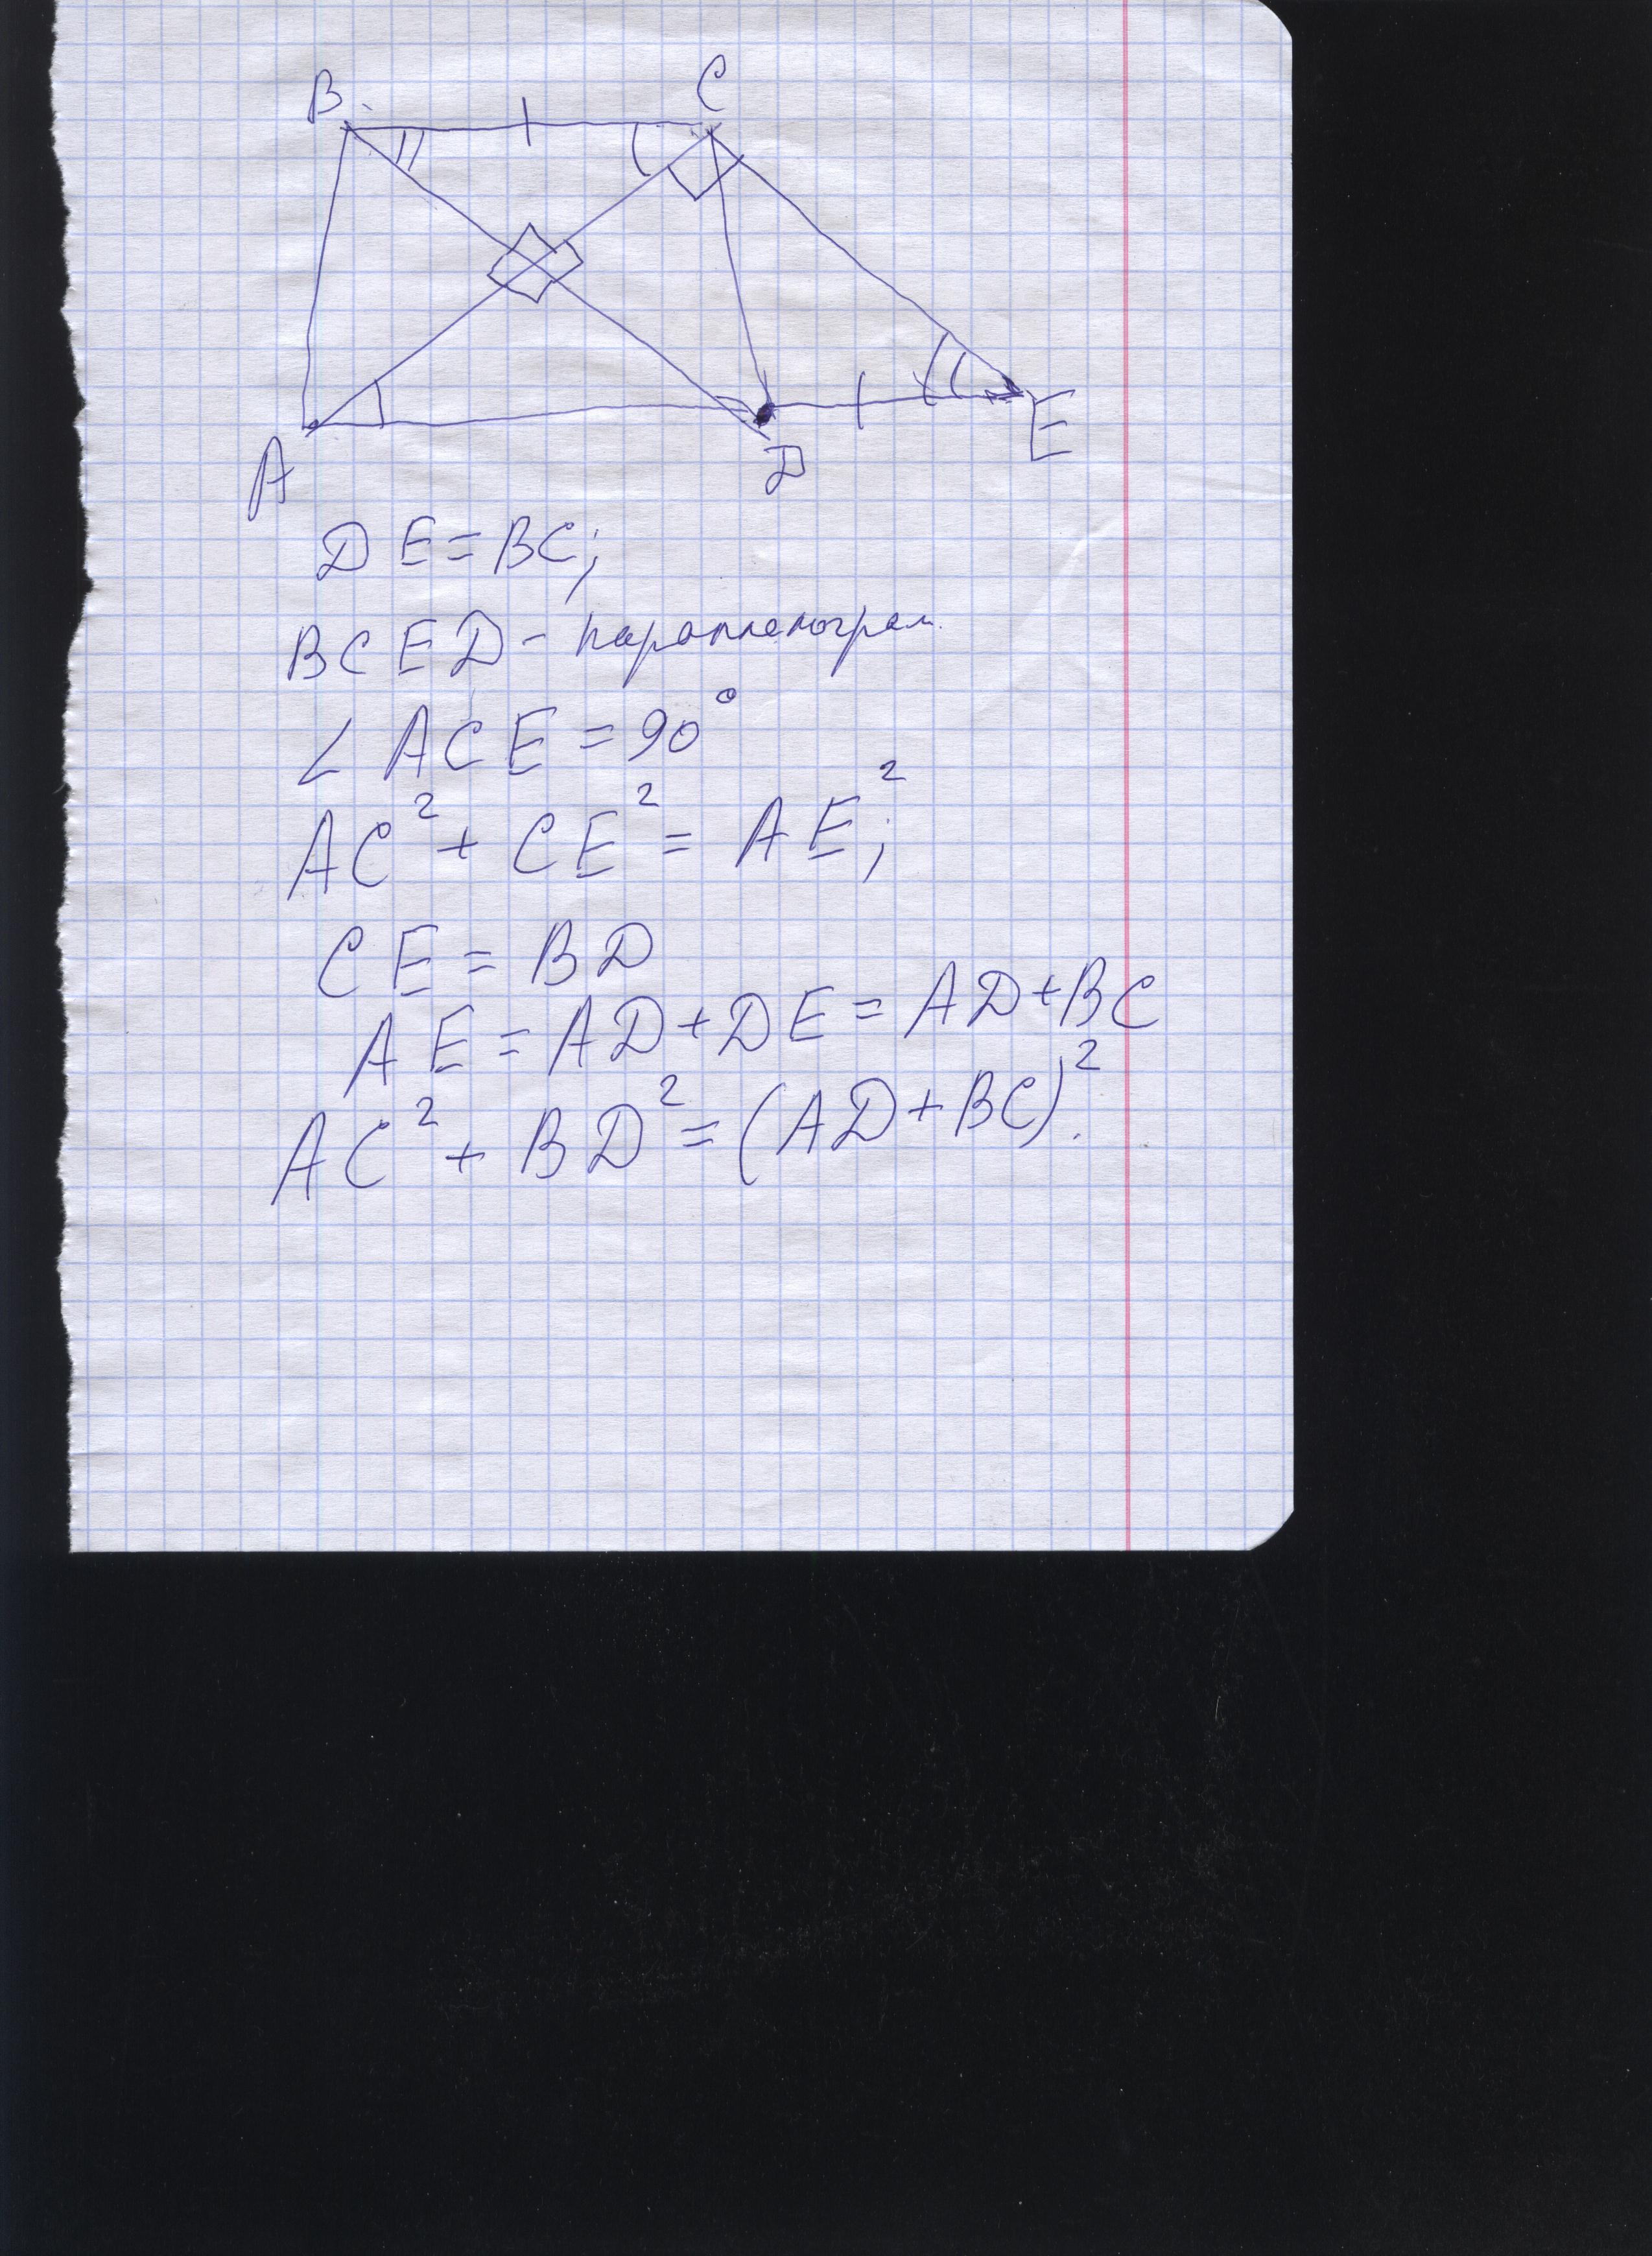 B
C
A
D
E
DE=BC;
BCED - параллелограм.
∠ACE = 90°
AC² + CE² = AE²;
CE = BD
AE = AD + DE = AD + BC
AC² + BD² = (AD + BC)².